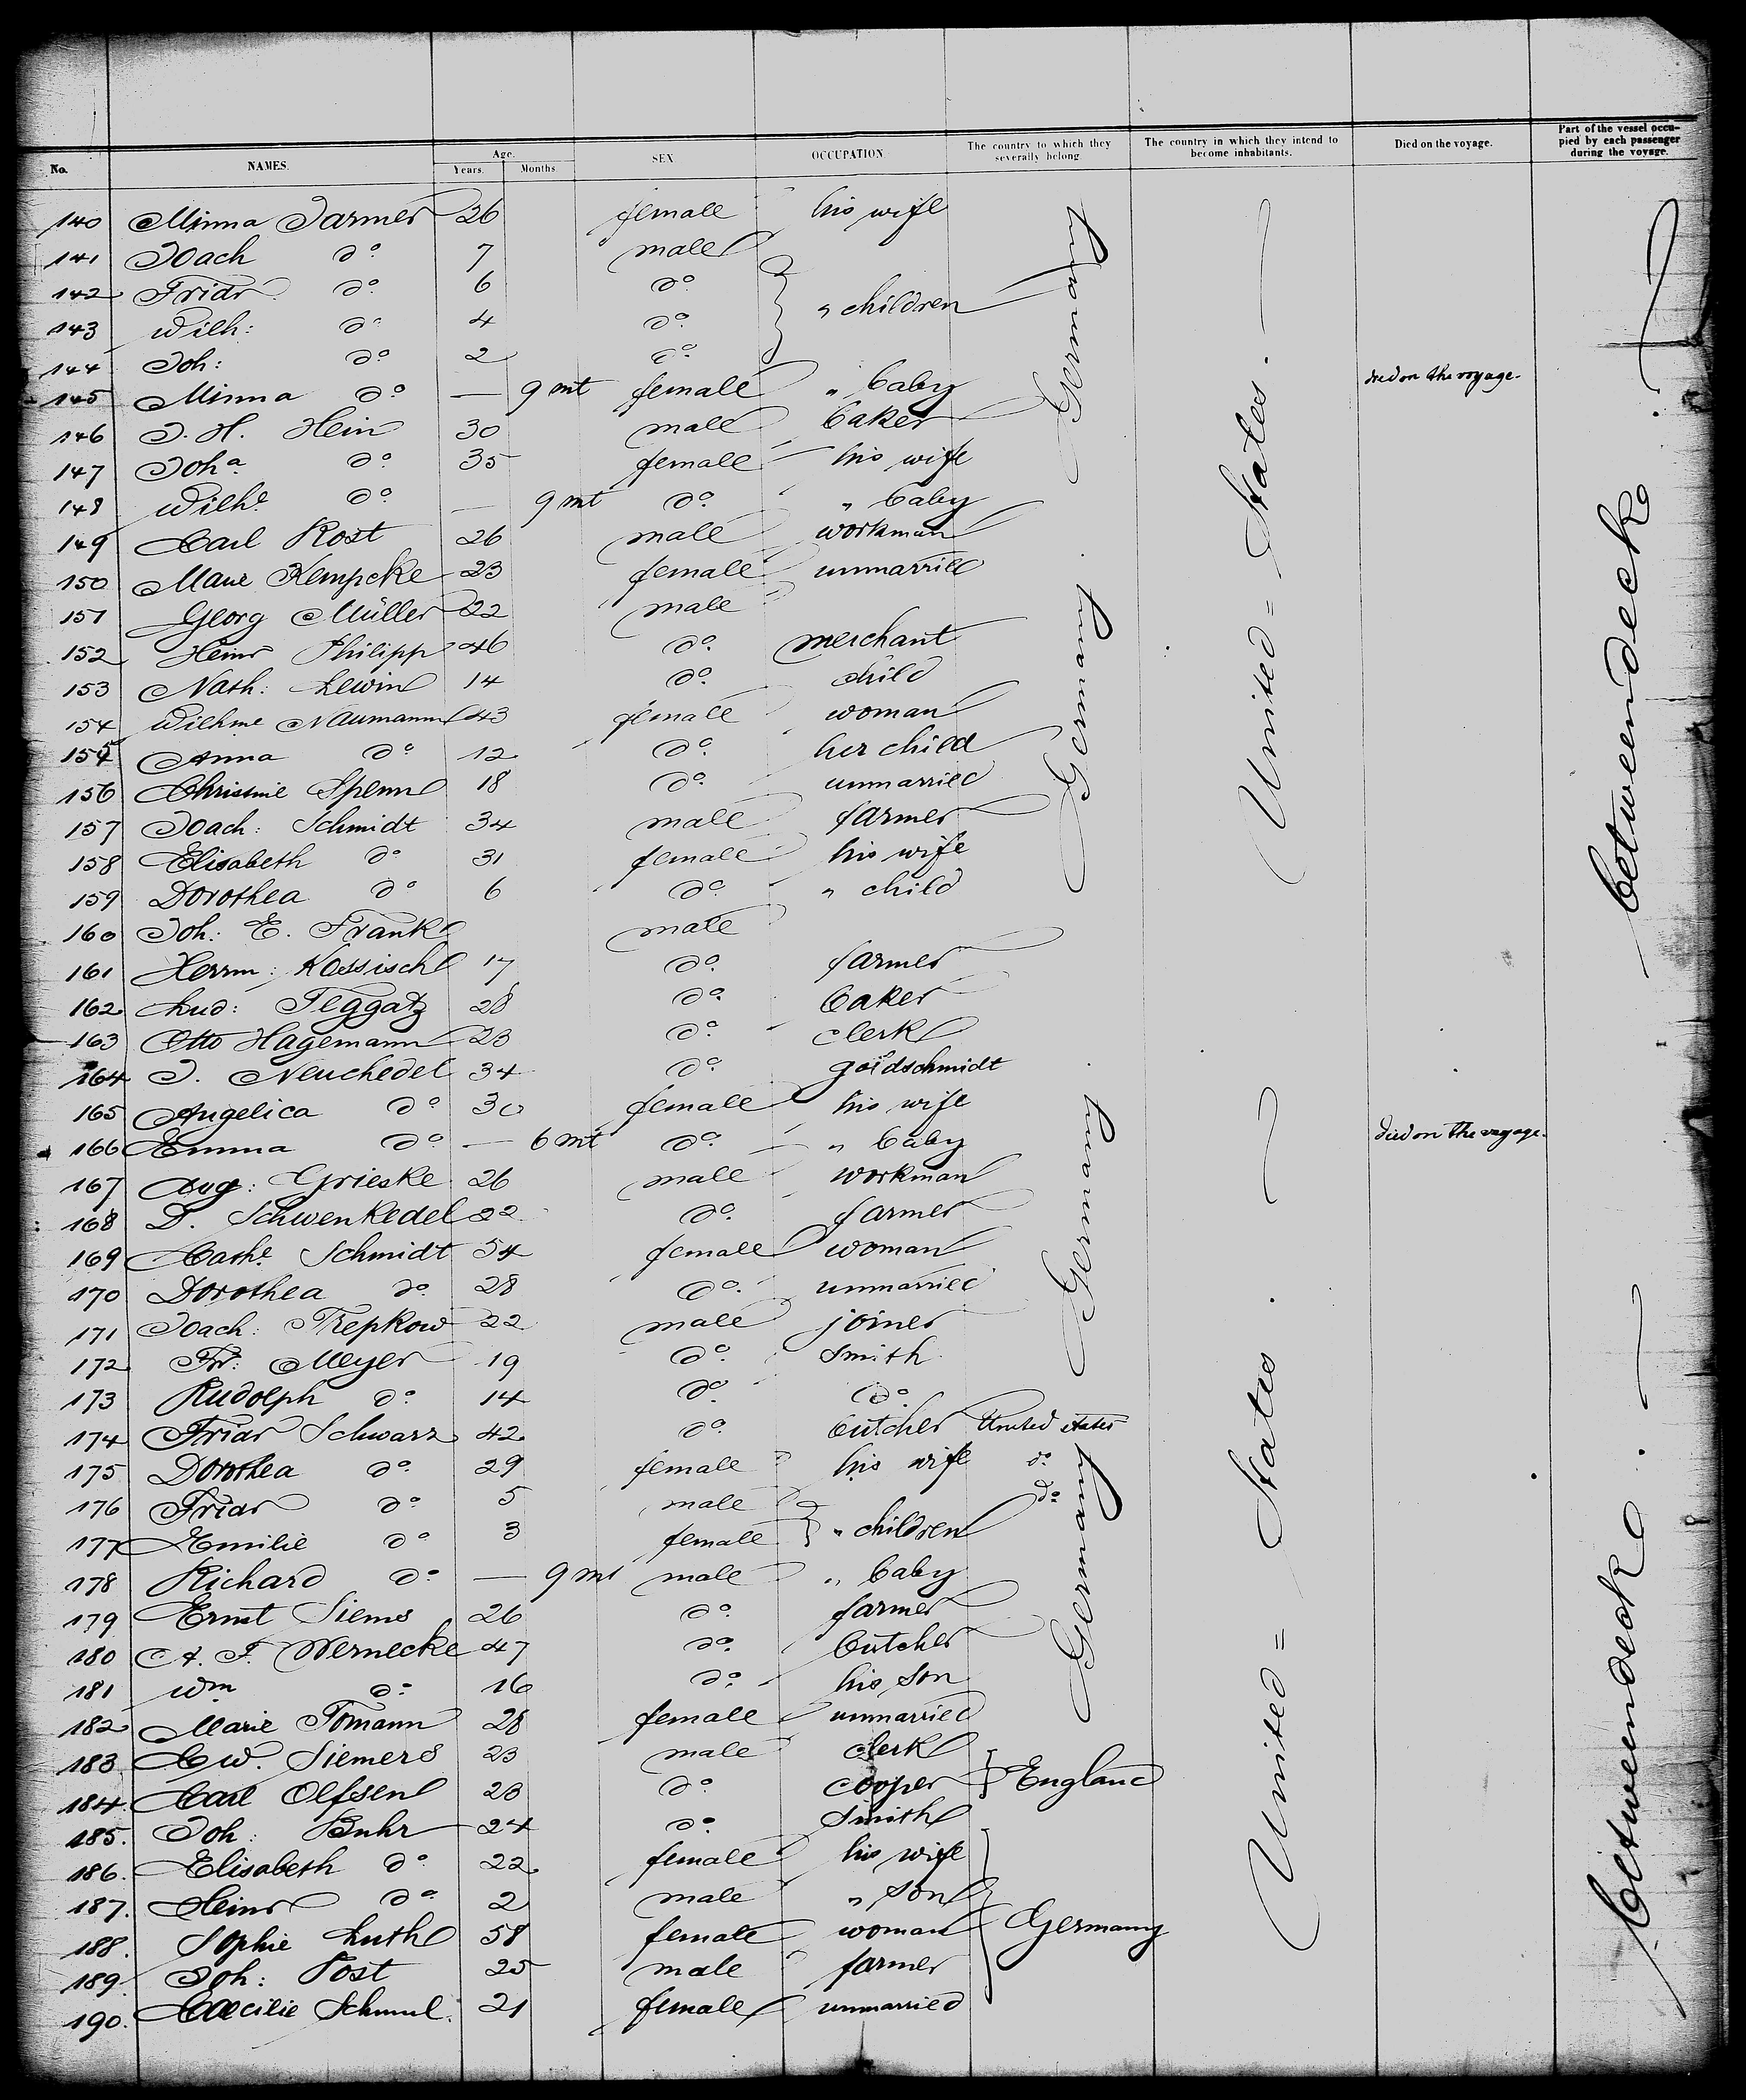 No. NAMES. Age. Years. Months. SEX OCCUPATION The country to which they severally belong The country in which they intend to become inhabitants. Died on the voyage. Part of the vessel occupied by each passenger during the voyage.
140 Minna Darmer 26 female his wife
141 Joach do 7 male
142 Friedr do 6 do
143 Wilh: do 4 do " children
144 Joh: do 2 do
145 Minna do — 9 mt female " baby died on the voyage.
146 J. H. Hein 30 male baker
147 Joha do 35 female his wife
148 Wilhe do — 9 mt do " baby
149 Carl Rost 26 male workman
150 Marie Kempcke 23 female unmarried
151 Georg Müller 22 male
152 Heinr Philipp 46 do merchant
153 Nath: Lewin 14 do child
154 Wilhme Naumann 43 female woman
155 Anna do 12 do her child
156 Christine Spenn 18 do unmarried
157 Joach: Schmidt 34 male farmer
158 Elisabeth do 31 female his wife
159 Dorothea do 6 do " child
160 Joh: E. Frank male
161 Herrm: Kossisch 17 do farmer
162 Lud: Teggatz 28 do baker
163 Otto Hagemann 23 do clerk
164 J. Neuchedel 34 do goldschmidt
165 Angelica do 30 female his wife
166 Emma do — 6 mt do " baby died on the voyage.
167 Aug: Grieske 26 male workman
168 D. Schwenkedel 22 do farmer
169 Cathe Schmidt 54 female woman
170 Dorothea do 28 do unmarried
171 Joach: Trepkow 22 male joiner
172 Fr: Meyer 19 do smith
173 Rudolph do 14 do do
174 Friedr Schwarz 42 do butcher United states
175 Dorothea do 29 female his wife do
176 Friedr do 5 male do
177 Emilie do 3 female " children
178 Richard do — 9 mt male " baby
179 Ernst Siems 26 do farmer
180 A. F. Wernecke 47 do butcher
181 Wm do 16 do his son
182 Marie Tomann 28 female unmarried
183 C W. Siemers 23 male clerk
184 Carl Olfsen 23 do cooper England
185. Joh: Buhr 24 do smith
186. Elisabeth do 22 female his wife
187. Heinr do 2 male " son
188. Sophie Luth 58 female woman Germany
189 Joh: Post 25 male farmer
190. Caecilie Schmul. 21 female unmarried
Germany
Germany
Germany
Germany
United = States.
United = States.
betweendeck.
betweendeck.